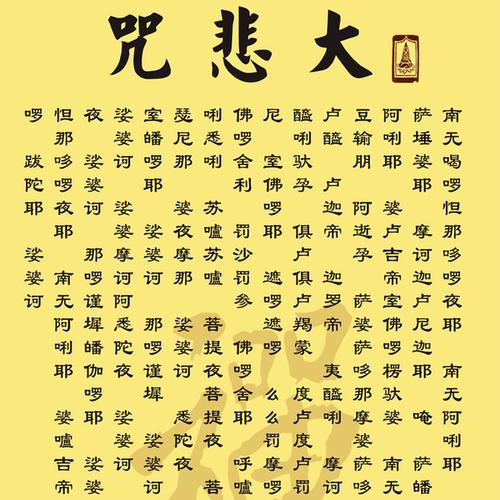 大悲咒
南无喝啰怛那哆啰夜耶 南无阿唎耶
萨埵婆耶 摩诃迦卢尼迦耶 唵 萨皤
阿唎耶 婆卢吉帝室佛啰楞驮婆 南无
豆输朋 阿逝孕 萨婆萨哆那摩婆萨
卢醯 卢迦帝 迦罗帝 夷醯唎 摩诃
醯唎驮孕 俱卢俱卢羯蒙 度卢度卢罚
尼 室佛啰耶 遮啰遮啰 么么罚摩
佛啰舍利 罚沙罚参 佛啰舍耶 呼嚧
唎悉唎 苏嚧苏嚧 菩提夜菩提夜 菩
瑟尼那 婆夜摩那 娑婆诃 悉陀夜
室皤啰耶 娑婆诃 那啰谨墀 娑婆诃
娑婆诃 娑婆摩诃阿悉陀夜 娑婆诃
夜 娑婆诃 那啰谨墀皤伽啰耶 娑婆
怛那哆啰夜耶 南无阿唎耶 婆嚧吉帝
啰 跋陀耶 娑婆诃